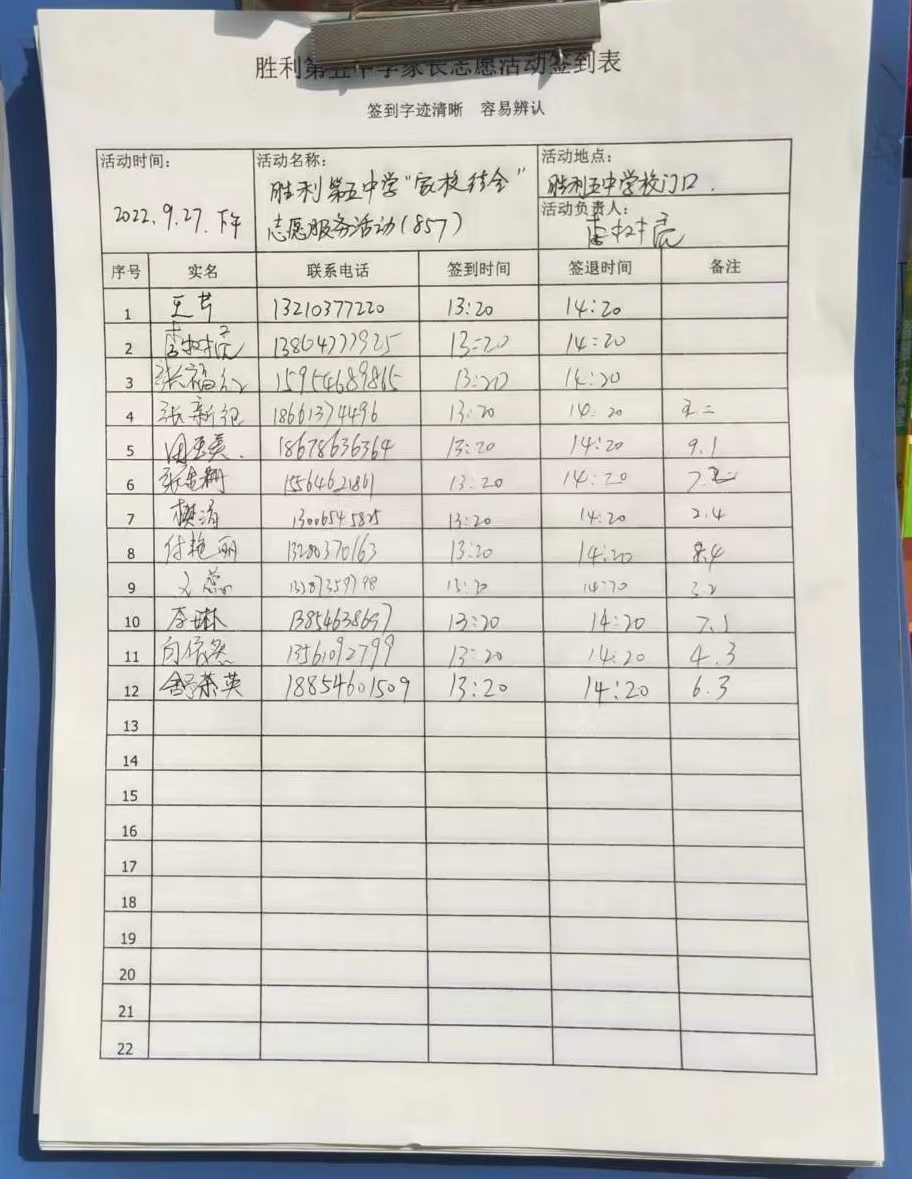 胜利第五中学家长志愿活动签到表
签到字迹清晰 容易辨认
活动时间: 活动名称: 活动地点:
2022.9.27.下午 胜利第五中学"家校结合" 胜利五中学校门口.
志愿服务活动(857) 活动负责人:
序号 实名 联系电话 签到时间 签退时间 备注
1 13210377220 13:20 14:20
2 13864777925 13:20 14:20
3 15954689865 13:20 14:20
4 张新纪 18661374496 13:20 14:20
5 18678636364 13:20 14:20 9.1
6 15564621861 13:20 14:20
7 樊涛 13006545825 13:20 14:20 2.4
8 付艳丽 13280370163 13:20 14:20 8.4
9 13287359798 13:20 14:20 3.2
10 李琳 13854638697 13:20 14:20 7.1
11 向依然 13561092799 13:20 14:20 4.3
12 舒荣英 18854601509 13:20 14:20 6.3
13
14
15
16
17
18
19
20
21
22